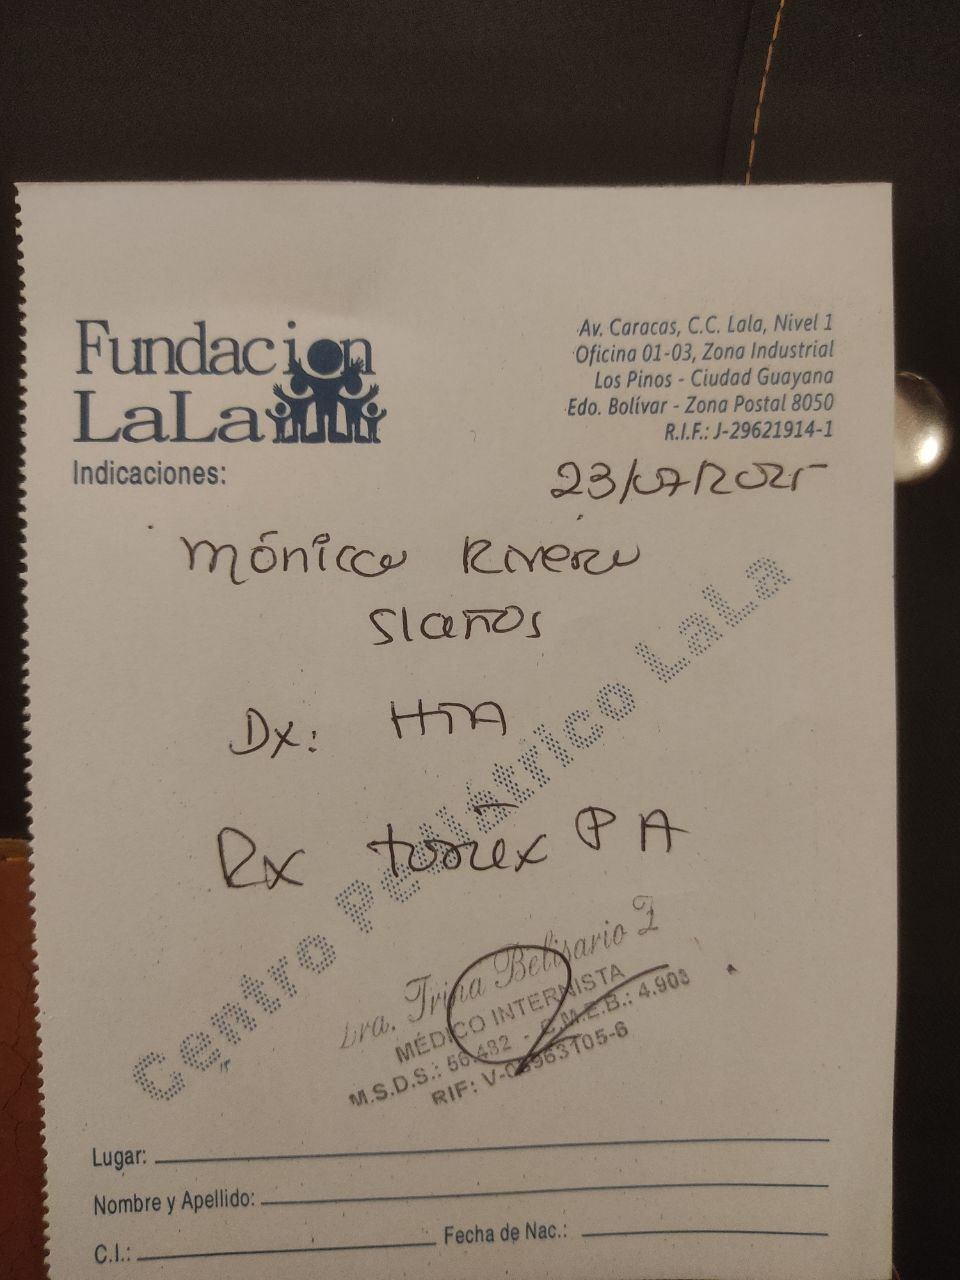 Fundacion
LaLa
Av. Caracas, C.C. Lala, Nivel 1
Oficina 01-03, Zona Industrial
Los Pinos - Ciudad Guayana
Edo. Bolívar - Zona Postal 8050
R.I.F.: J-29621914-1
Indicaciones:
23/07/2025
Mónica Rivera
51 años
Dx: HTA
Rx tórax PA
Centro Pediátrico LaLa
Dra. Trina Belisario Z
MÉDICO INTERNISTA
M.S.D.S.: 56.482 - C.M.E.B.: 4.908
RIF: V-
Lugar:
Nombre y Apellido:
C.I.: Fecha de Nac.: